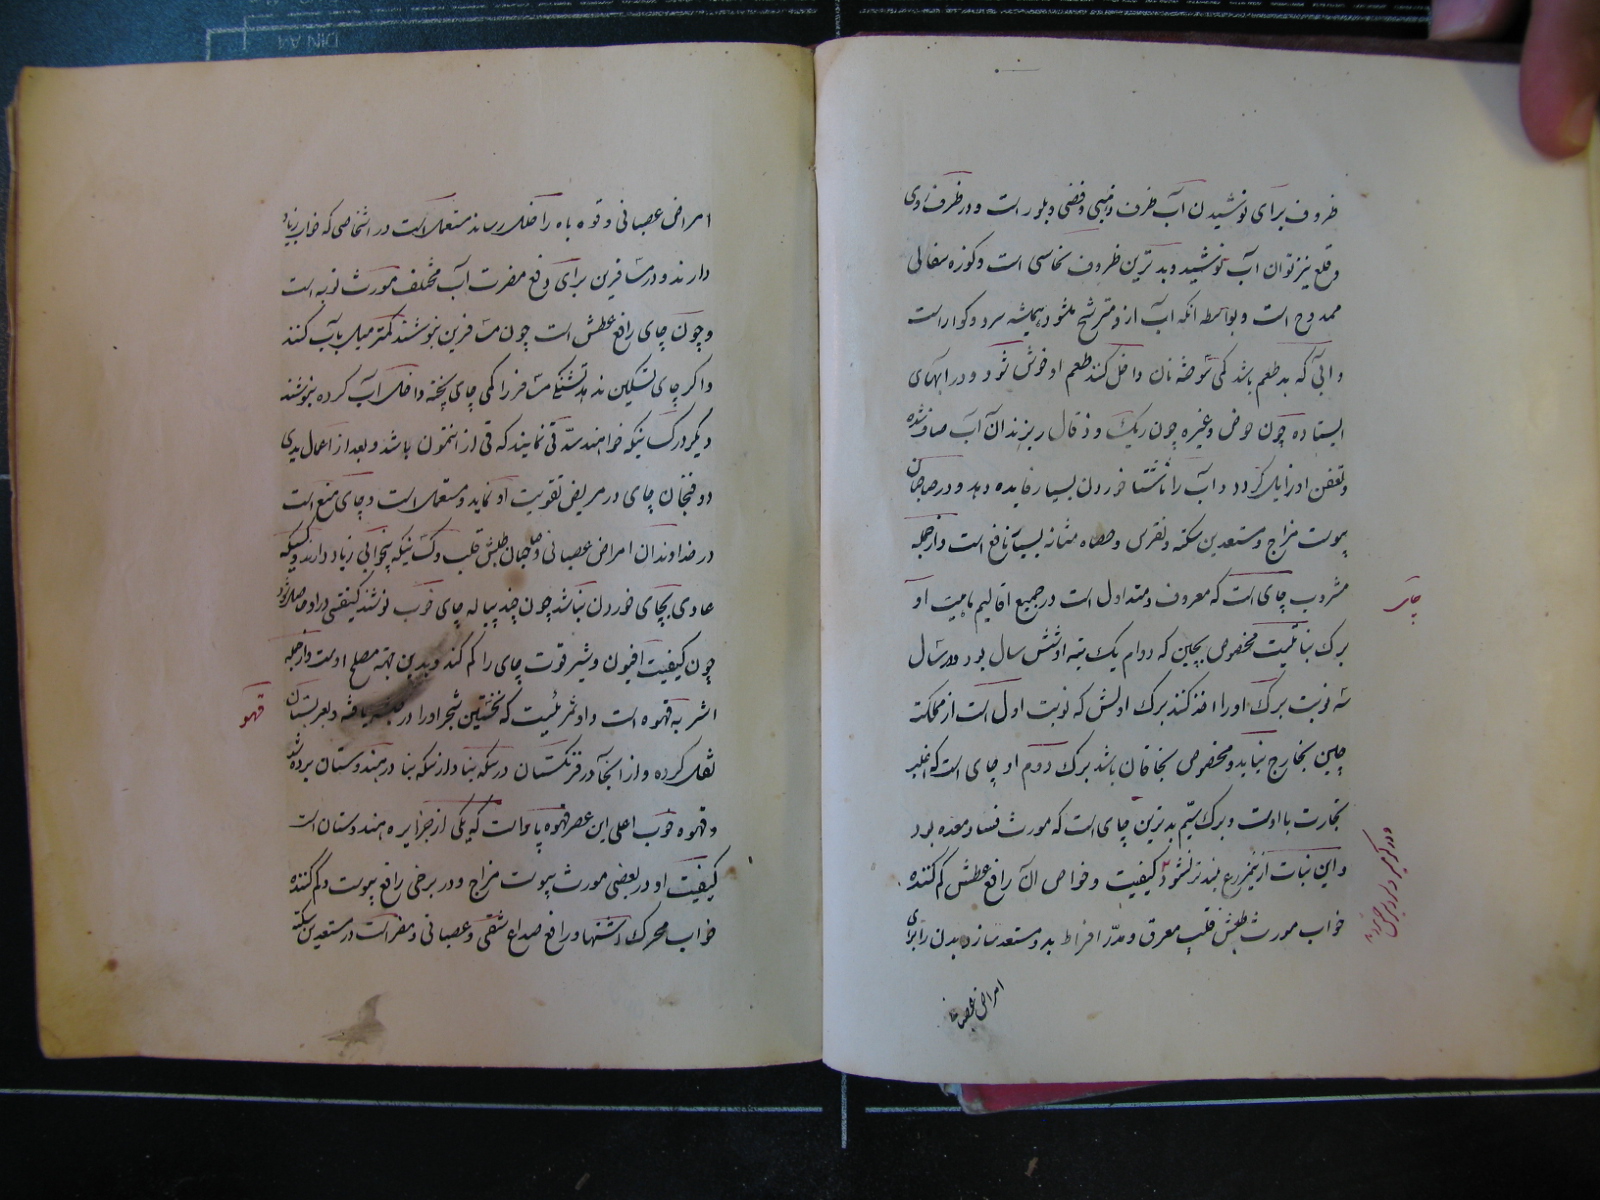 ظروف برای نوشیدن آب ظرف ذهبی و فضی و بلور است و در ظرف
و قلع نیز توان آب نوشید و بدترین ظروف نحاسی است و کوزه سفالی
ممدوح است و بواسطه انکه آب از او مترشح میشود همیشه سرد و کوارا است
و آبی که بد طعم باشد کمی سوخته نان داخل کنند طعم او خوش شود و در آبهای
ایستاده چون حوض و غیره چون ریک و ذقال ریزند آن آب صاف شده
و تعفن او زایل کردد و آب را ناشتا خوردن بسیار فایده دهد و در صاحبان
یبوست مزاج و مستعدین سکته و نقرس و حصاه مثانه بسیار نافع است و از جمله
مشروب چای است که معروف و متداول است در جمیع اقالیم ماهیت او
برک نباتیست مخصوص بچین که دوام یک بته او شش سال بود و در سال
سه نوبت برک او را اخذ کنند برک اولش که نوبت اول است از مملکت
چین بخارج نیاید و مخصوص بخاقان باشد برک دوم او چای است که اغلب
تجارت با اوست و برک سیّم بدترین چای است که مورث فساد معده بود
و این نبات از نیم زرع بلندتر نشود کیفیت و خواص آن رافع عطش کم کننده
خواب مورث طپش قلب معرق و مدّر افراط بد و مستعد سازد بدن را برای
امراض عصبانی
چای
امراض عصبانی و قوه باه را خلل رساند مستعمل است در اشخاصی که خواب زیاد
دارند و در مسافرین برای دفع مضرت آب مختلف مورث نوبه است
و چون چای رافع عطش است چون مسافرین بنوشند کمتر میل بآب کنند
و اکر چای تسکین ندهد تشنکی مسافر را کمی چای پخته داخل آب کرده بنوشند
دیکر در کسانیکه خواهند سدّ قی نمایند که قی از انتمون باشد و بعد از اعمال یدی
دو فنجان چای در مریض تقویت او نماید و مستعمل است و چای منع است
در خداوندان امراض عصبانی و صاحبان طپش قلب و کسانیکه بیخوابی زیاد دارند و کسیکه
عادی بچای خوردن نباشد چون چند پیاله چای خوب نوشد کیفیتی در او حاصل شود
چون کیفیت افیون و شیر قوت چای را کم کند و بدین جهة مصلح اوست و از جمله
اشربه قهوه است و او ثمریست که نخستین شجر او را در حبشه یافته و بعربستان
نقل کرده و از آنجا در فرنکستان در ینکه دنیا و از ینکه دنیا در هندوستان برده شد
و قهوه خوب اعلی این عصر قهوه یاوا است که یکی از جزایره هندوستان است
کیفیت او در بعضی مورث یبوست مزاج و در برخی رافع یبوست و کم کننده
خواب محرک اشتها و رافع صداع شقی و عصبانی و مضر است در مستعدین سکته
قهوه